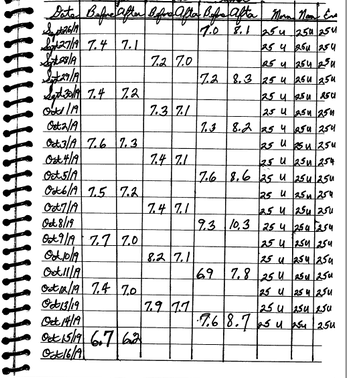 Date Before After Before After Before After Morn Noon Eve
Sept 26/19 7.0 8.1 25u 25u 25u
Sept 27/19 7.4 7.1 25u 25u 25u
Sept 28/19 7.2 7.0 25u 25u 25u
Sept 29/19 7.2 8.3 25u 25u 25u
Sept 30/19 7.4 7.2 25u 25u 25u
Oct 1/19 7.3 7.1 25u 25u 25u
Oct 2/19 7.3 8.2 25u 25u 25u
Oct 3/19 7.6 7.3 25u 25u 25u
Oct 4/19 7.4 7.1 25u 25u 25u
Oct 5/19 7.6 8.6 25u 25u 25u
Oct 6/19 7.5 7.2 25u 25u 25u
Oct 7/19 7.4 7.1 25u 25u 25u
Oct 8/19 9.3 10.3 25u 25u 25u
Oct 9/19 7.7 7.0 25u 25u 25u
Oct 10/19 8.2 7.1 25u 25u 25u
Oct 11/19 6.9 7.8 25u 25u 25u
Oct 12/19 7.4 7.0 25u 25u 25u
Oct 13/19 7.9 7.7 25u 25u 25u
Oct 14/19 7.6 8.7 25u 25u 25u
Oct 15/19 6.7 6.2
Oct 16/19